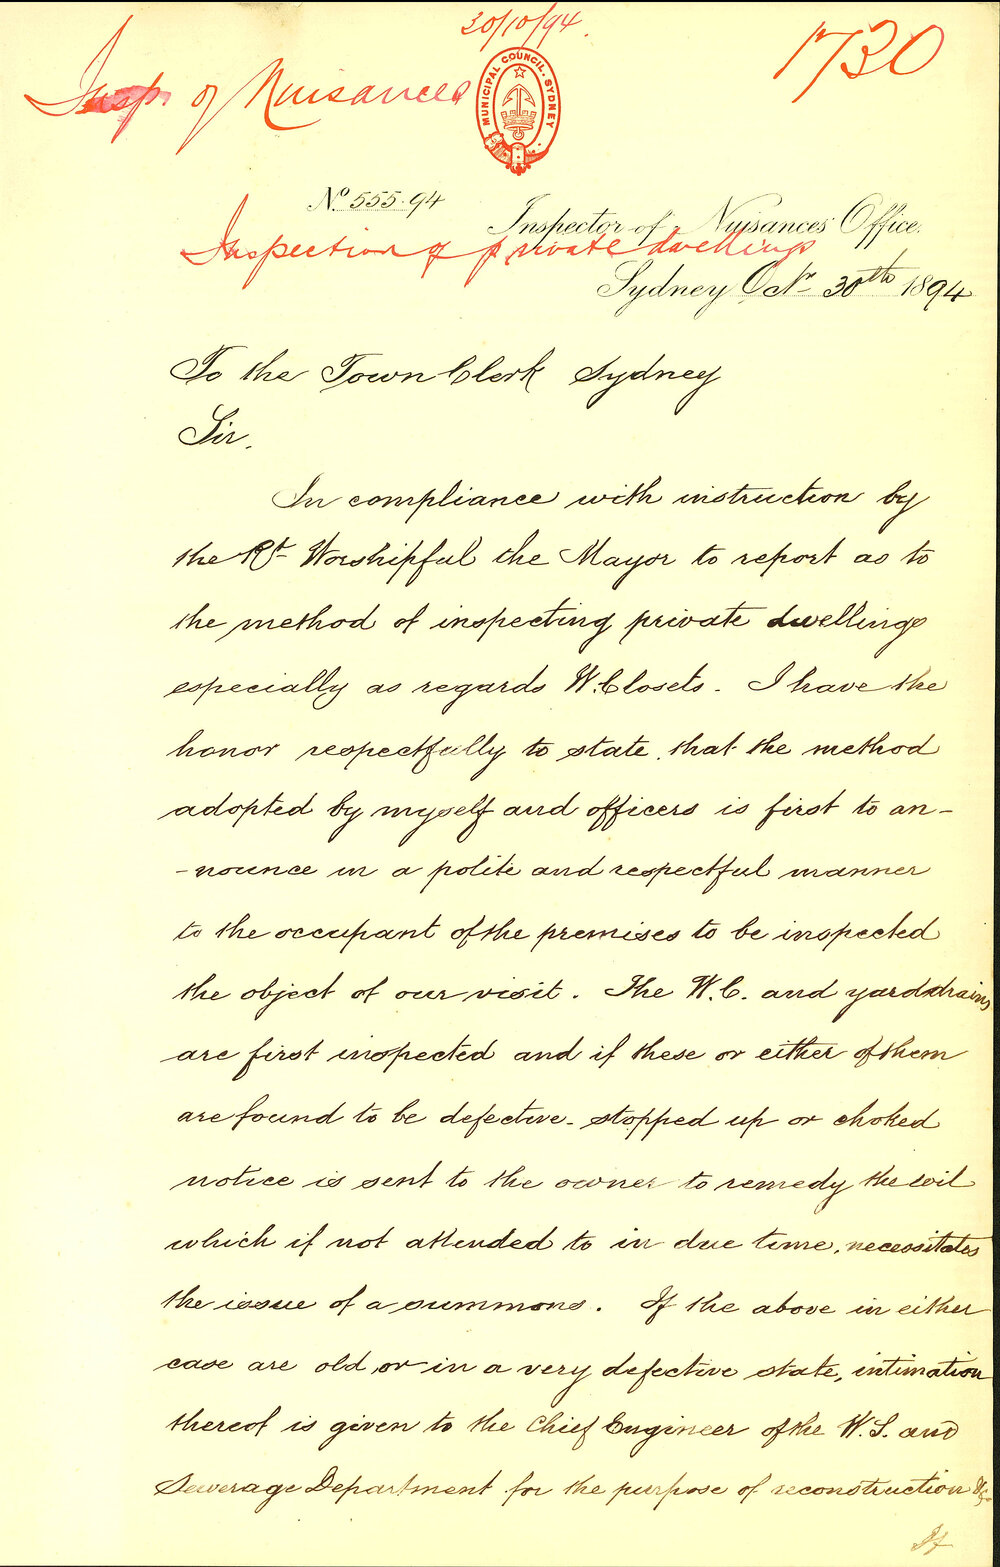 30/10/94.
1730
Insp. of Nuisances
MUNICIPAL COUNCIL. SYDNEY
No. 555.94
Inspector of Nuisances Office.
Inspection of private dwellings
Sydney Octr 30th 1894
To the Town Clerk Sydney
Sir.
In compliance with instruction by
the Rt. Worshipful the Mayor to report as to
the method of inspecting private dwellings
especially as regards W. Closets. I have the
honor respectfully to state, that the method
adopted by myself and officers is first to an-
-nounce in a polite and respectful manner
to the occupant of the premises to be inspected
the object of our visit. The W.C. and yard drains
are first inspected and if these or either of them
are found to be defective. stopped up or choked
notice is sent to the owner to remedy the evil
which if not attended to in due time, necessitates
the issue of a summons. If the above in either
case are old or in a very defective state, intimation
thereof is given to the Chief Engineer of the W.S. and
Sewerage Department for the purpose of reconstruction &c
If